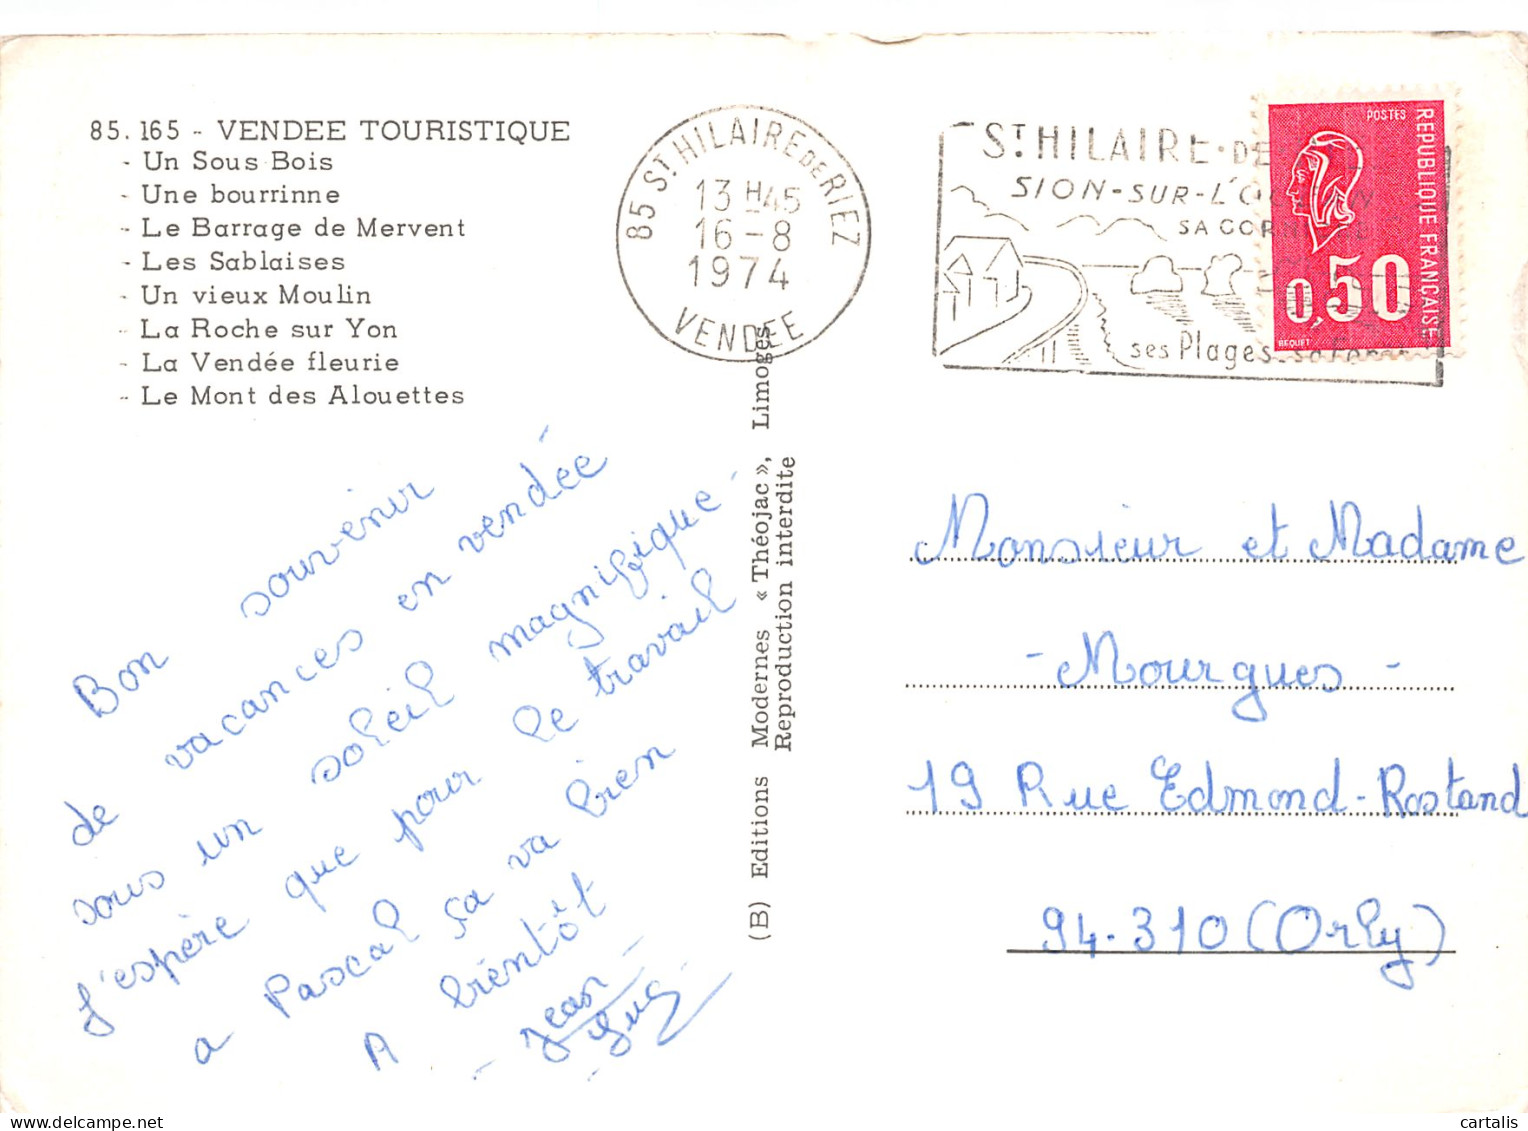 85. 165 - VENDEE TOURISTIQUE
- Un Sous Bois
- Une bourrinne
- Le Barrage de Mervent
- Les Sablaises
- Un vieux Moulin
- La Roche sur Yon
- La Vendée fleurie
- Le Mont des Alouettes
85 ST HILAIRE DE RIEZ
13 H 45
16 - 8
1974
VENDEE
ST HILAIRE - DE
SION - SUR - L'
SA
ses Plages
POSTES
REPUBLIQUE FRANÇAISE
0,50
BEQUET
Bon souvenir
de vacances en vendée
sous un soleil magnifique -
J'espère que pour le travail
a Pascal sa va bien
A bientôt
- Jean -
- Luc -
(B) Editions Modernes « Théojac », Limoges
Reproduction interdite
Monsieur et Madame
- Mourgues -
19 Rue Edmond-Rostand
94.310 (Orly)
cartalis
www.delcampe.net